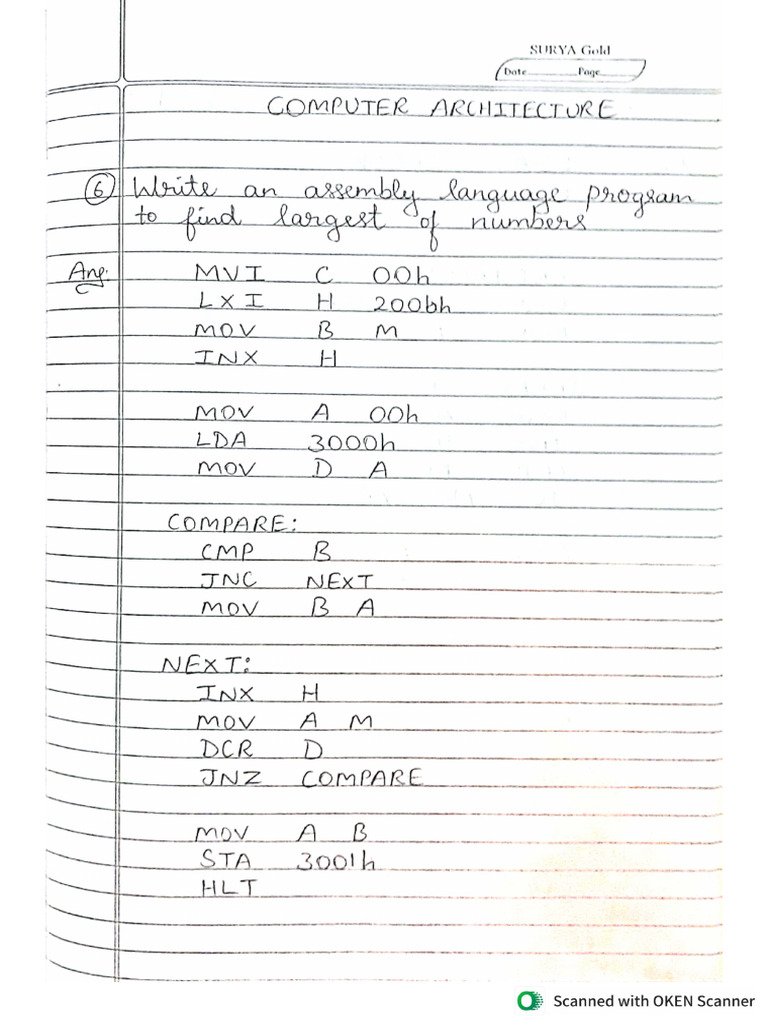 SURYA Gold
Date Page
COMPUTER ARCHITECTURE
6 Write an assembly language program
to find largest of numbers
Ans: MVI C 00h
LXI H 200bh
MOV B M
INX H
MOV A 00h
LDA 3000h
MOV D A
COMPARE:
CMP B
JNC NEXT
MOV B A
NEXT:
INX H
MOV A M
DCR D
JNZ COMPARE
MOV A B
STA 3001h
HLT
Scanned with OKEN Scanner